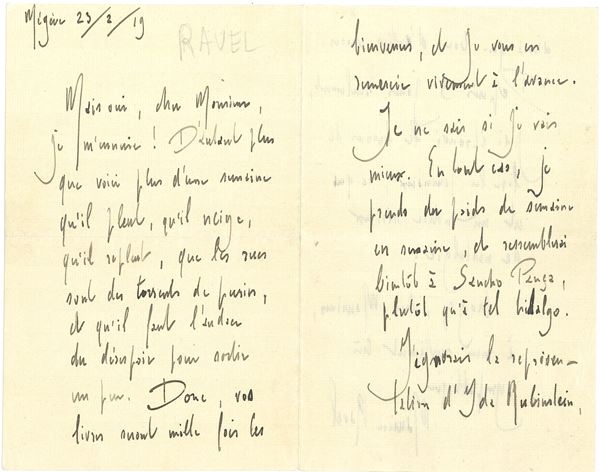 Mégève 23/2/19
RAVEL
Mais oui, cher Monsieur,
je m'ennuie ! D'autant plus
que voici plus d'une semaine
qu'il pleut, qu'il neige,
qu'il repleut, que les rues
sont des torrents de purin,
et qu'il faut l'audace
du désespoir pour sortir
un peu. Donc, vos
livres seront mille fois les
bienvenus, et je vous en
remercie vivement à l'avance.
Je ne sais si je vais
mieux. En tout cas, je
prends du poids de semaine
en semaine, et ressemblerai
bientôt à Sancho Pança,
plutôt qu'à tel hidalgo.
J'ignorais la représen-
tation d'Ida Rubinstein,